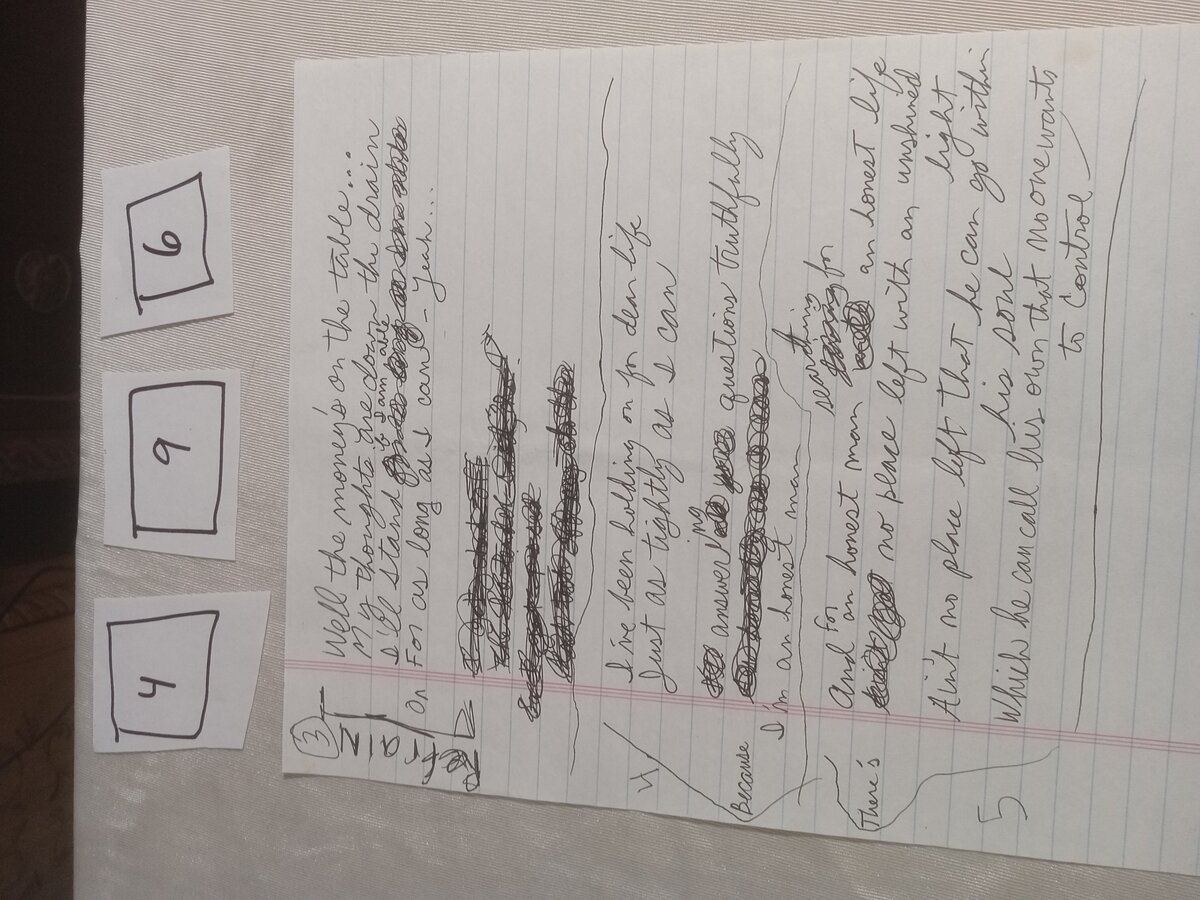 4
9
6
3
Well the money's on the table...
My thoughts are down the drain
I'll stand
is I am are
For as long as I can - Yeah...
On
4
I've been holding on for dear life
Just as tightly as I can
ing
answer questions truthfully
Because
I'm an honest man
searching
And an honest man for an honest life
for
There's no place left with an unshined light
Ain't no place left that he can go within his soul
5
Which he can call his own that no one wants to control